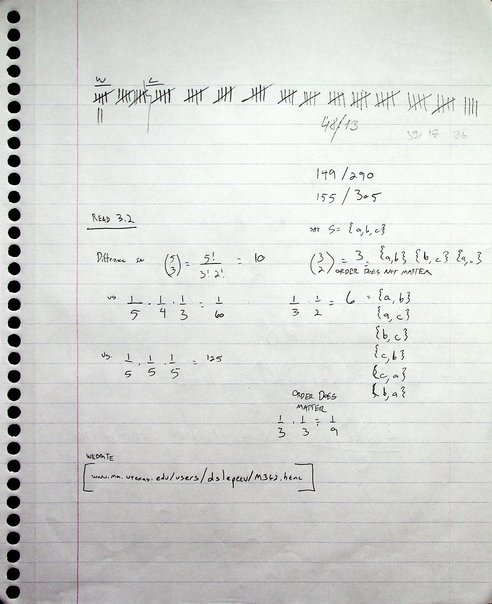 W L
48/13
39/17 26
149/290
155/305
READ 3.2
SAY S = {a,b,c}
Difference (5 3) = 5!/3!2! = 10
(3 2) = 3 = {a,b} {b,c} {a,c}
ORDER DOES NOT MATTER
vs 1/5 · 1/4 · 1/3 = 1/60
1/3 · 1/2 = 6 = {a,b}
{a,c}
{b,c}
{c,b}
vs. 1/5 · 1/5 · 1/5 = 125
{c,a}
{b,a}
ORDER DOES
MATTER
1/3 · 1/3 = 1/9
WEBSITE
www.ma.utexas.edu/users/dslepcev/M362.html